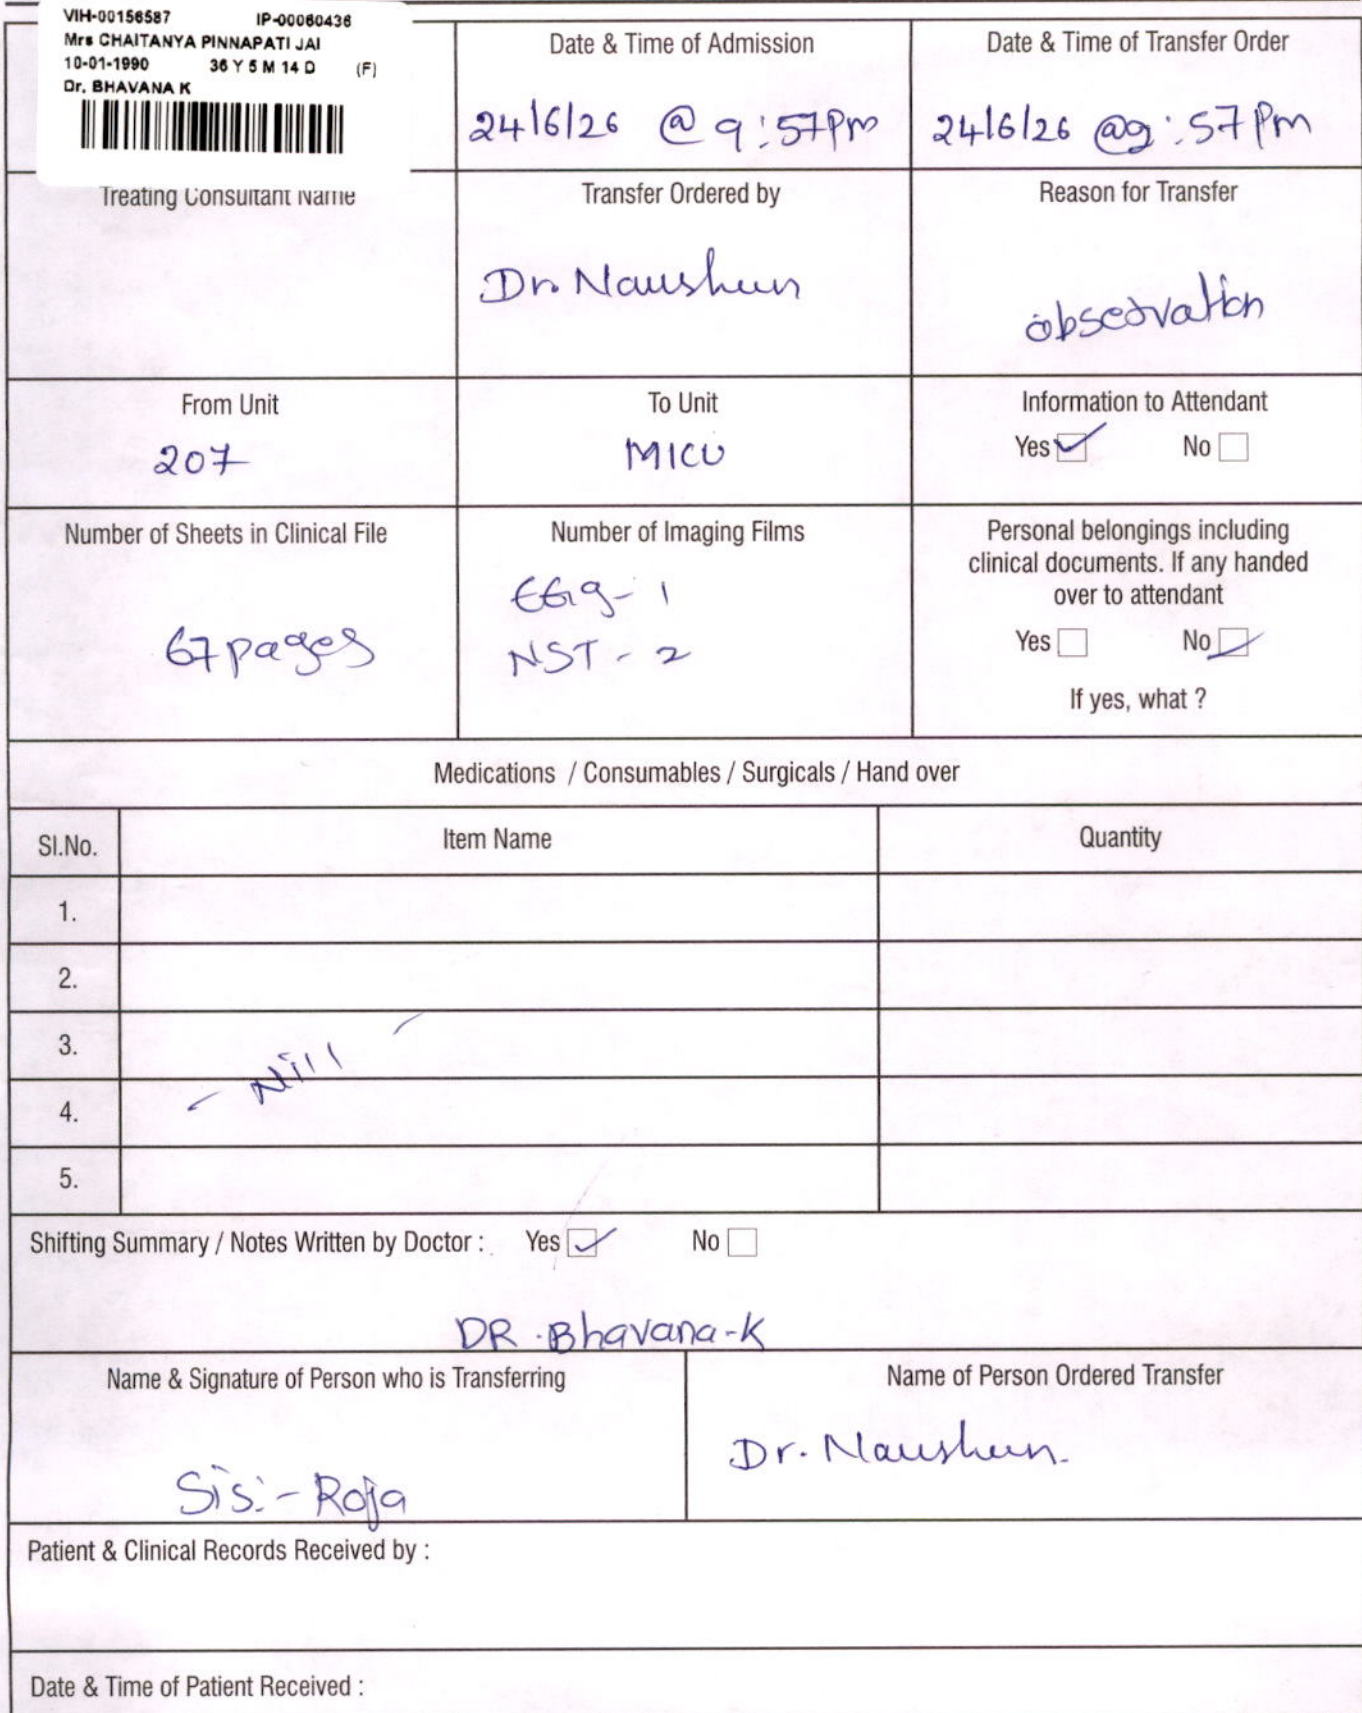 VIH-00156587 IP-00060436
Mrs CHAITANYA PINNAPATI JAI
10-01-1990 36 Y 5 M 14 D (F)
Dr. BHAVANA K
Date & Time of Admission
24/6/26 @ 9:57pm
Date & Time of Transfer Order
24/6/26 @9:57pm
Treating Consultant Name
Transfer Ordered by
Dr. Nausheen
Reason for Transfer
observation
From Unit
207
To Unit
MICU
Information to Attendant
Yes No
Number of Sheets in Clinical File
67 pages
Number of Imaging Films
NST - 2
Personal belongings including
clinical documents. If any handed
over to attendant
Yes No
If yes, what ?
Medications / Consumables / Surgicals / Hand over
Sl.No. Item Name Quantity
1.
2.
3.
- Nill -
4.
5.
Shifting Summary / Notes Written by Doctor : Yes No
DR. Bhavana-K
Name & Signature of Person who is Transferring
Sis:- Roja
Name of Person Ordered Transfer
Dr. Nausheen.
Patient & Clinical Records Received by :
Date & Time of Patient Received :